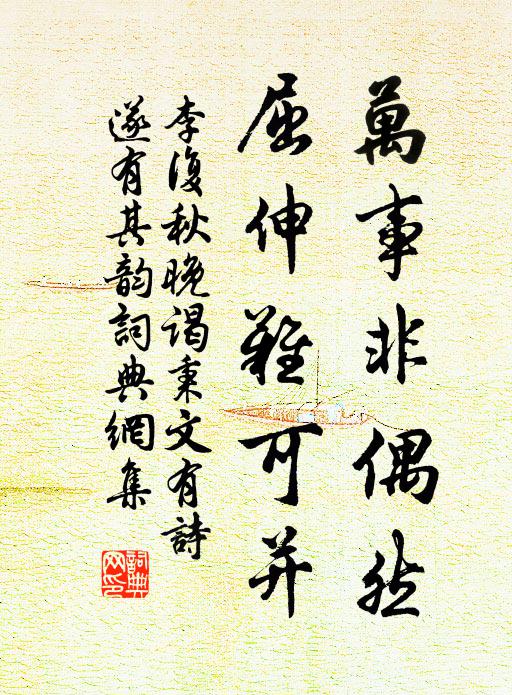 萬事非偶然
屈伸難可并
李復秋晚謁秉文有詩
遂有其韵詞典網集
詞典
网印